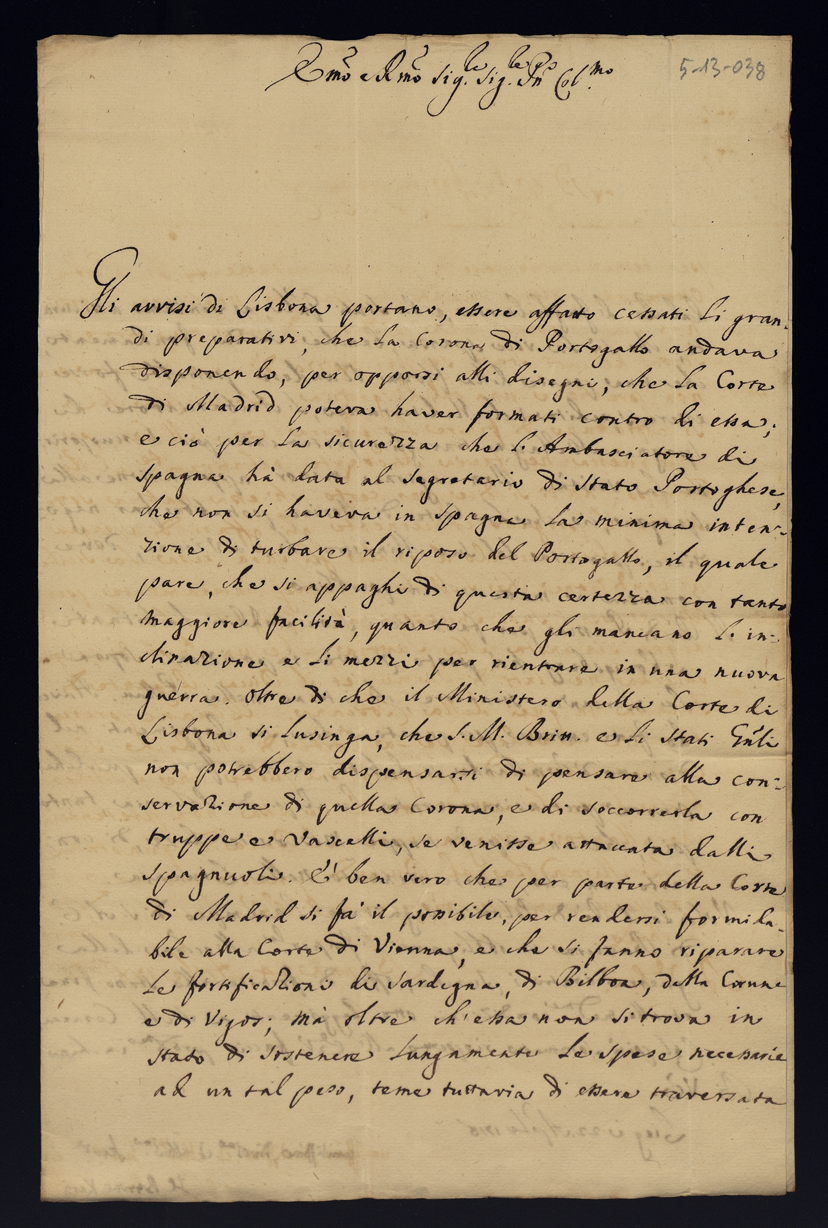 Emo e Rmo Sig.re Sig.re Pñ Col.mo
5-13-038
Gli avvisi di Lisbona portano, essere affatto cessati li gran-
di preparativi, che la Corona di Portogallo andava
disponendo, per opporsi alli disegni, che la Corte
di Madrid poteva haver formati contro di essa;
e ciò per la sicurezza che l'Ambasciatore di
Spagna hà data al Segretario di Stato Portoghese,
che non si haveva in Spagna la minima inten-
zione di turbare il riposo del Portogallo, il quale
pare, che si appaghi di questa certezza con tanto
maggiore facilità, quanto che gli mancano l'in-
clinazione e li mezzi per rientrare in una nuova
guerra. Oltre di che il Ministero della Corte di
Lisbona si lusinga, che S. M. Brin. e li Stati Gñli
non potrebbero dispensarsi di pensare alla con-
servazione di quella Corona, e di soccorrerla con
truppe e Vascelli, se venisse attaccata dalli
Spagnuoli. E' ben vero che per parte della Corte
di Madrid si fà il possibile, per rendersi formida-
bile alla Corte di Vienna, e che si fanno riparare
le fortificazioni di Sardegna, di Bilboa, della Corune
e di Vigos; mà oltre ch'essa non si trova in
stato di sostenere lungamente le spese necessarie
ad un tal peso, teme tuttavia di essere traversata